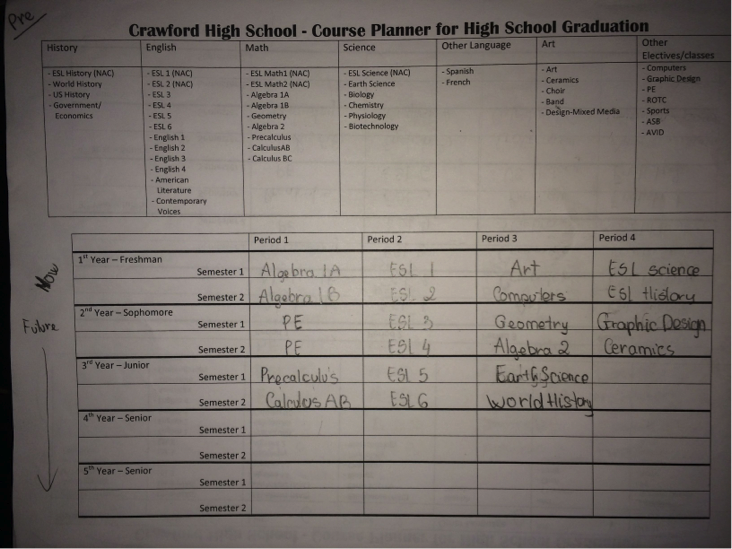 Pre
Crawford High School - Course Planner for High School Graduation
History
- ESL History (NAC)
- World History
- US History
- Government/
Economics
English
- ESL 1 (NAC)
- ESL 2 (NAC)
- ESL 3
- ESL 4
- ESL 5
- ESL 6
- English 1
- English 2
- English 3
- English 4
- American
Literature
- Contemporary
Voices
Math
- ESL Math1 (NAC)
- ESL Math2 (NAC)
- Algebra 1A
- Algebra 1B
- Geometry
- Algebra 2
- Precalculus
- CalculusAB
- Calculus BC
Science
- ESL Science (NAC)
- Earth Science
- Biology
- Chemistry
- Physiology
- Biotechnology
Other Language
- Spanish
- French
Art
- Art
- Ceramics
- Choir
- Band
- Design-Mixed Media
Other
Electives/classes
- Computers
- Graphic Design
- PE
- ROTC
- Sports
- ASB
- AVID
Period 1 Period 2 Period 3 Period 4
Now
1st Year – Freshman
Semester 1 Algebra 1A ESL 1 Art ESL science
Semester 2 Algebra 1B ESL 2 Computers ESL History
Future
2nd Year – Sophomore
Semester 1 PE ESL 3 Geometry Graphic Design
Semester 2 PE ESL 4 Algebra 2 Ceramics
3rd Year – Junior
Semester 1 Precalculus ESL 5 Earth Science
Semester 2 Calculus AB ESL 6 World History
4th Year – Senior
Semester 1
Semester 2
5th Year – Senior
Semester 1
Semester 2